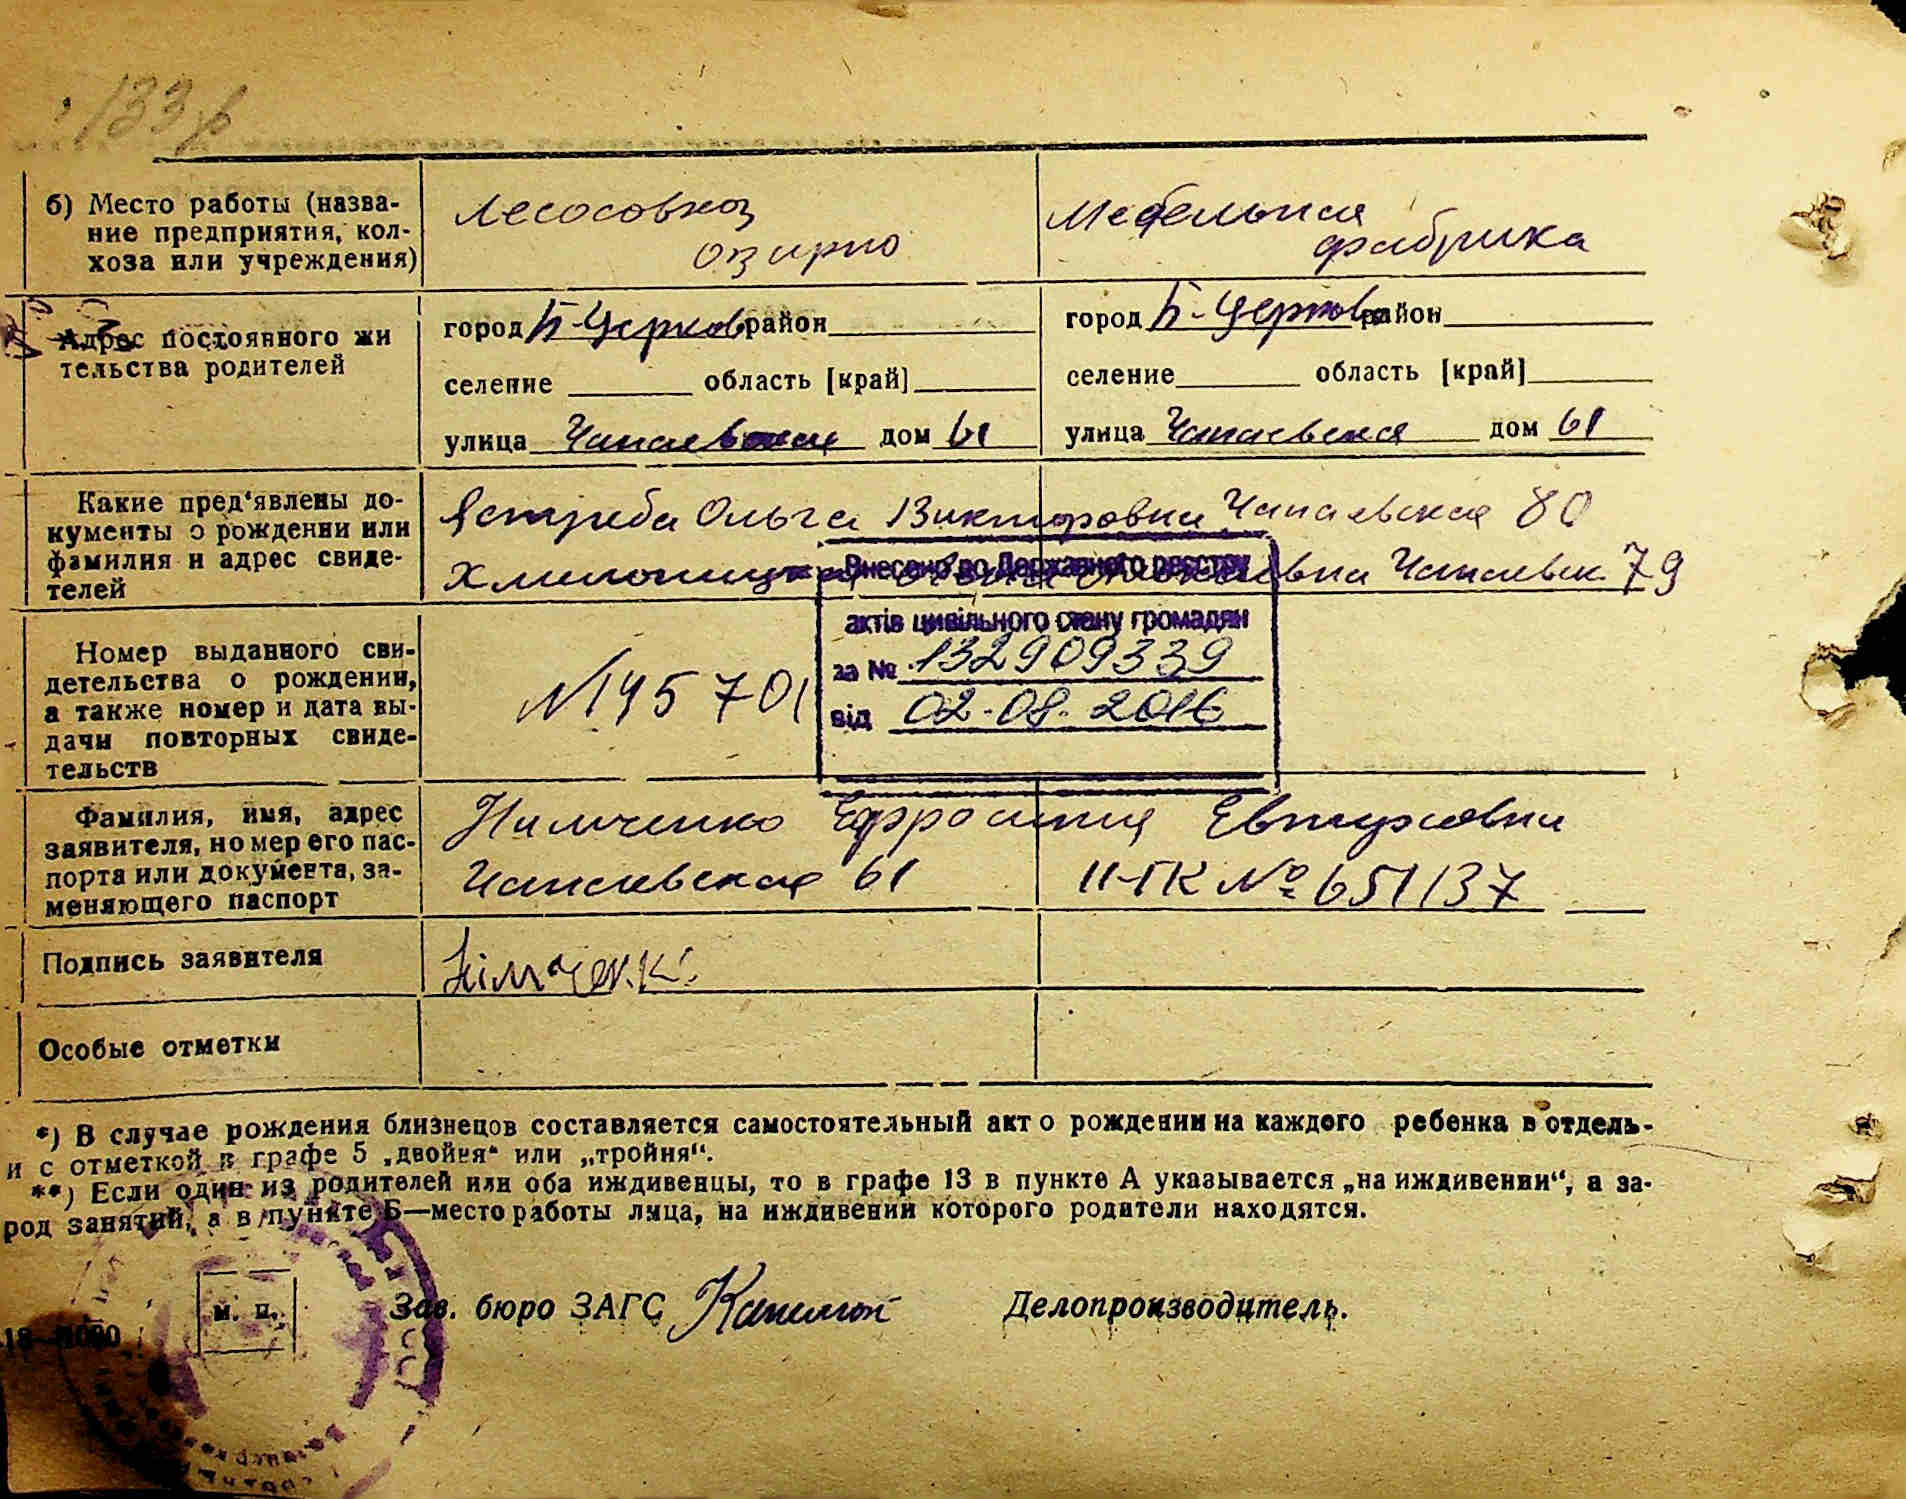 133
б) Место работы (назва-
ние предприятия, кол-
хоза или учреждения)
Лесосовхоз
озирно
Мебельная
фабрика
Адрес постоянного жи
тельства родителей
город Б-Церковь район
селение область [край]
улица Чапаевская дом 61
город Б-Церковь район
селение область [край]
улица Чапаевская дом 61
Какие пред'явлены до-
кументы о рождении или
фамилия и адрес свиде-
телей
Ястреба Ольга Викторовна Чапаевская 80
Чапаевск. 79
Внесено до Державного реєстру
актів цивільного стану громадян
за № 132909339
від 02.08.2016
Номер выданного сви-
детельства о рождении,
а также номер и дата вы-
дачи повторных свиде-
тельств
№145701
Фамилия, имя, адрес
заявителя, номер его пас-
порта или документа, за-
меняющего паспорт
Нимченко Ефросиния Евтуховна
Чапаевская 61 II-ГК № 651137
Подпись заявителя
Німченк.
Особые отметки
*) В случае рождения близнецов составляется самостоятельный акт о рождении на каждого ребенка в отдель-
и с отметкой в графе 5 „двойня“ или „тройня“.
**) Если один из родителей или оба иждивенцы, то в графе 13 в пункте А указывается „на иждивении“, а за-
род занятий, а в пункте Б—место работы лица, на иждивении которого родители находятся.
м. п.
Зав. бюро ЗАГС
Делопроизводитель.